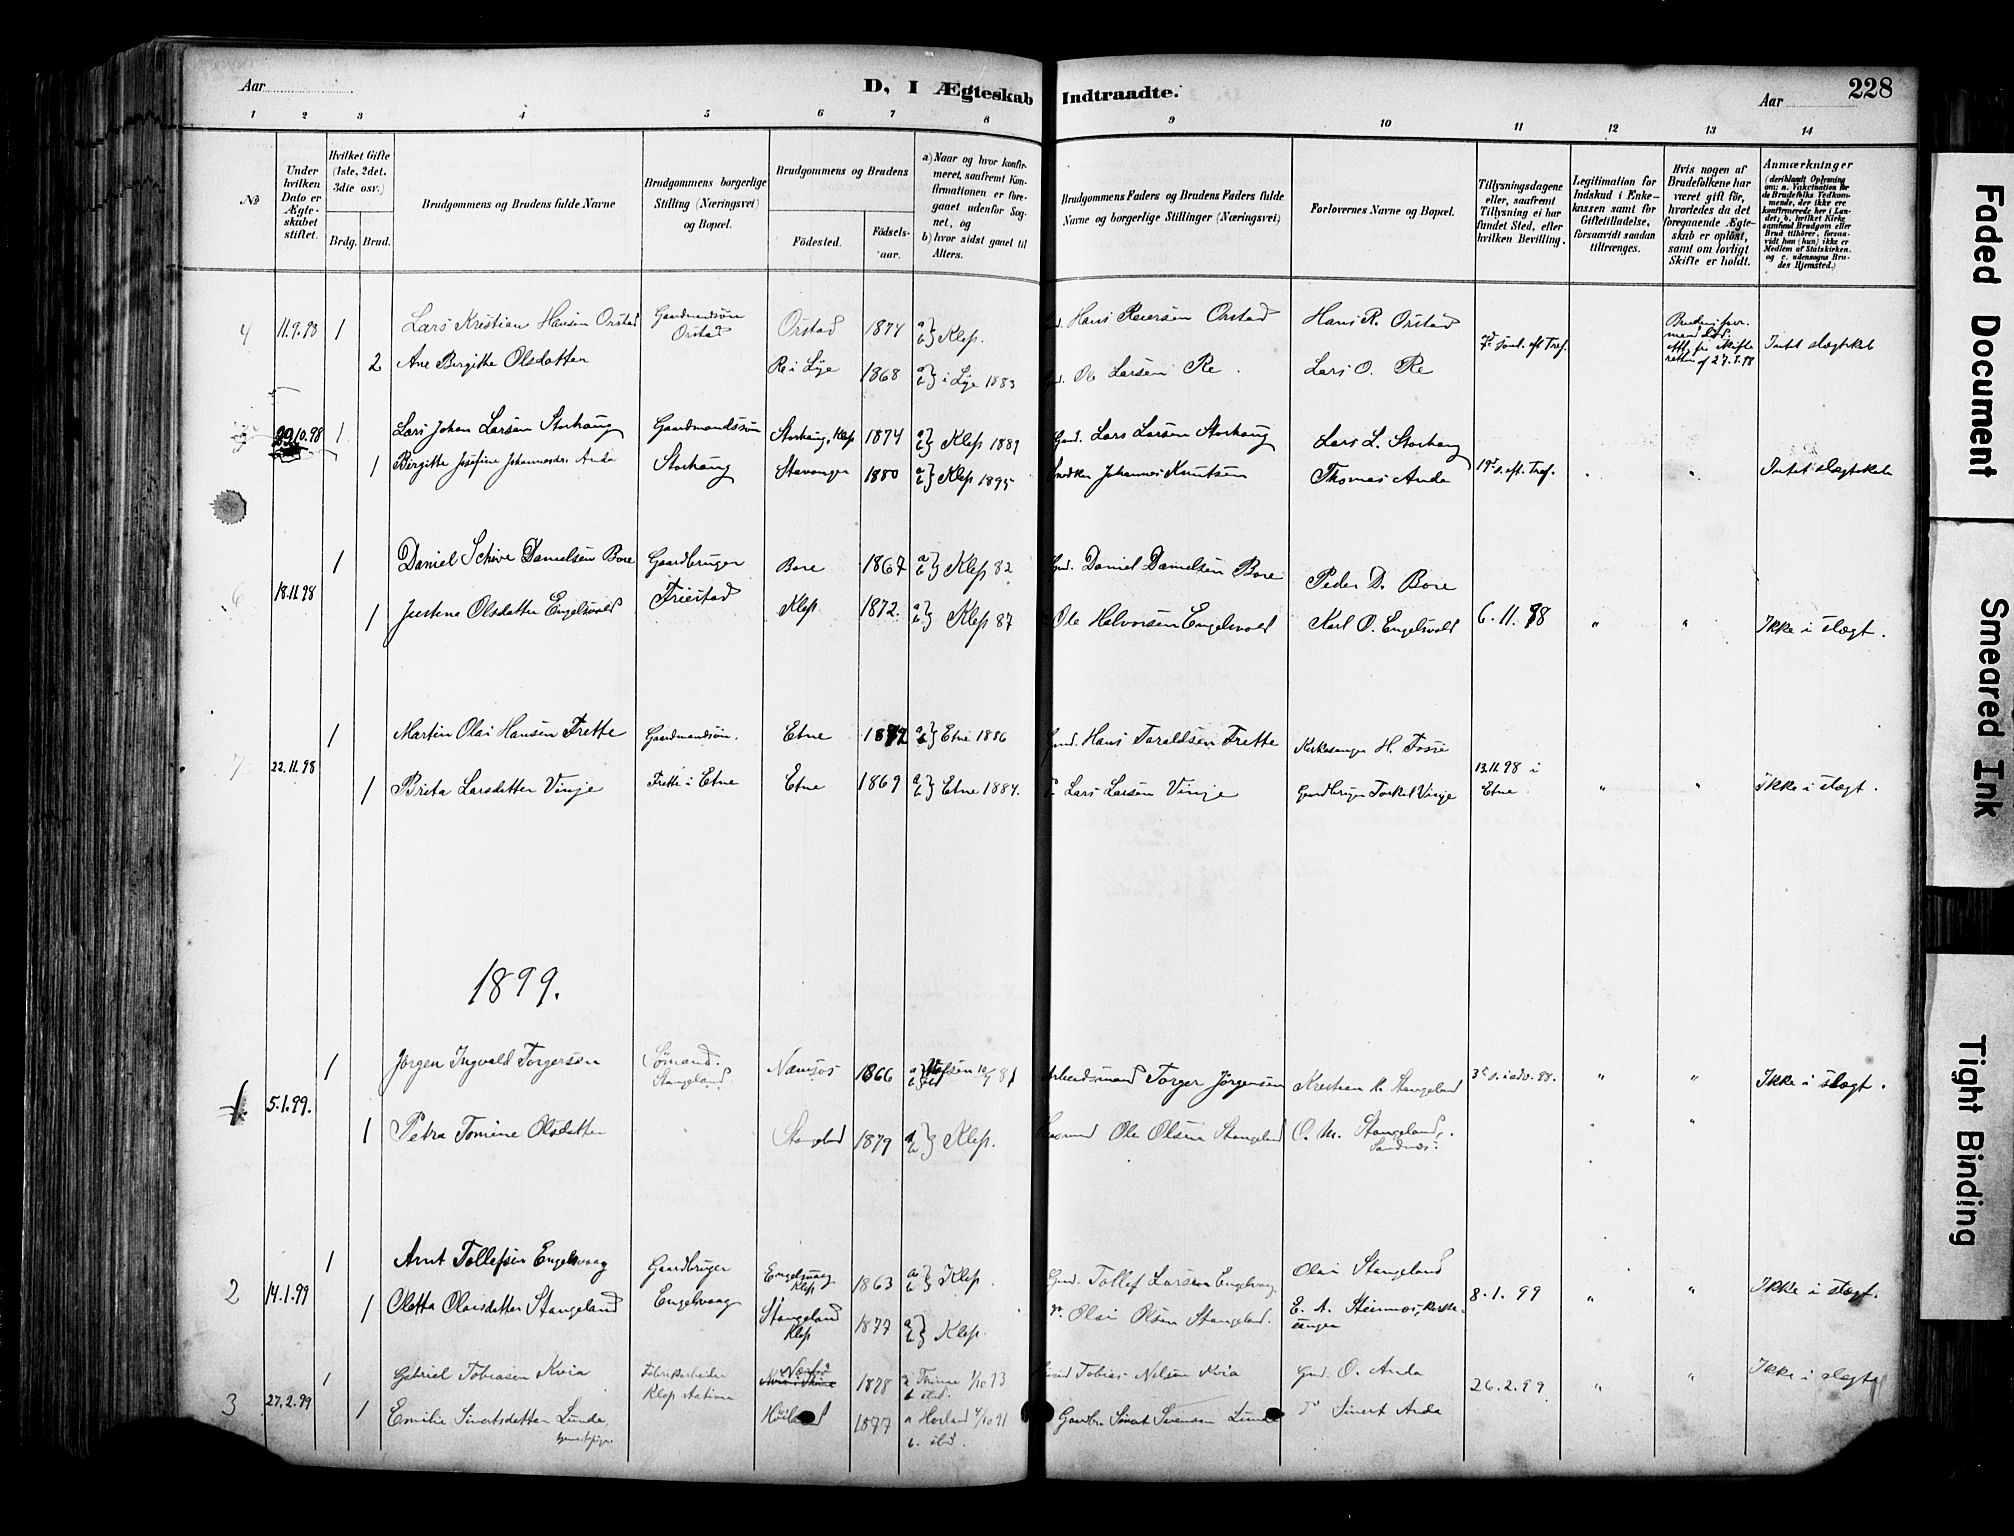 Aar
D. I Ægteskab Indtraadte.
Aar
228
1 2 3 4 5 6 7 8 9 10 11 12 13 14
No
Under hvilken Dato er Ægteskabet stiftet.
Hvilket Gifte (1ste, 2det, 3die osv.)
Brdg. Brud.
Brudgommens og Brudens fulde Navne
Brudgommens borgerlige Stilling (Næringsvei) og Bopæl.
Brudgommens og Brudens
Fødested.
Fødselsaar.
a) Naar og hvor konfirmeret, saafremt Konfirmationen er foregaaet udenfor Sognet, og
b) hvor sidst gaaet til Alters.
Brudgommens Faders og Brudens Faders fulde Navne og borgerlige Stillinger (Næringsvei)
Forlovernes Navne og Bopæl.
Tillysningsdagene eller, saafremt Tillysning ei har fundet Sted, efter hvilken Bevilling.
Legitimation for Indskud i Enkekassen samt for Giftetilladelse, forsaavidt saadan tiltrænges.
Hvis nogen af Brudefolkene har været gift før, hvorledes da det foregaaende Ægteskab er opløst, samt om lovligt Skifte er holdt.
Anmærkninger
(deriblandt Oplysning om: a. Vakcination for de Brudefolks Vedkommende, der ikke ere konfirmerede her i Landet; b. hvilket Kirkesamfund Brudgom eller Brud tilhører, forsaavidt han (hun) ikke er Medlem af Statskirken. og c. udensogns Brudes Hjemsted.)
4 11.9.93 1 Lars Kristian Hansen Orstad Gaardmandssøn Orstad Orstad 1874 a b } Klep. Hans Reiersen Orstad Hans R. Orstad Intet slægtskab
2 Ane Birgitte Olsdatter Re i Lye 1868 a b } i Lye 1883 Ole Larsen Re. Lars O. Re
29.10.98 1 Lars Johan Larsen Storhaug Gaardmandssøn Storhaug, Klep 1874 a b } Klep 1889 Gmd. Lars Larsen Storhaug Lars L. Storhaug
1 Birgitte Josefine Johannesdr. Anda Storhaug Stavanger 1880 a b } Klep 1895 Johannes Knutsen Thomas Anda 19d s. eft. Tref. " Intet slægtskab
6 18.11.98 1 Daniel Schive Danielsen Bore Gaardbruger Friestad Bore 1867 a b } Klep 82 Gmd. Daniel Danielsen Bore Peder D. Bore
1 Justine Olsdatter Engelsvold Klep. 1872. a b } Klep 87 Ole Halvorsen Engelsvold Karl O. Engelsvold 6.11.98 " " Ikke i slægt.
7 22.11.98 1 Martin Olai Hansen Frette Gaardmandssøn. Etne 1872 a b } Etne 1886 Gmd. Hans Taraldsen Frette Kirkesanger H. Fosse 13.11.98 i Etne
1 Brita Larsdatter Vinje Frette i Etne Etne 1869 a b } Etne 1884. Lars Larsen Vinje Gaardbruger Torkel Vinje " " Ikke i slægt.
1899.
1 5.1.99. 1 Jørgen Ingvald Torgersen Sømand. Stangeland. Namsos 1866 Arbeidsmand Torger Jørgensen Kristian R. Stangeland 3d s. i adv. 98. " " Ikke i slægt.
1 Petra Tomine Olsdatter Stangeland 1879 a b } Klep. Ole Olsen Stangeland O. M. Stangeland, Sandnes. "
2 14.1.99 1 Arnt Tollefsen Engelsvaag Gaardbruger Engelsvaag Engelsvaag Klep 1863 a b } Klep. Gmd. Tollef Larsen Engelsvaag Olai Stangeland 8.1.99 " " Ikke i slægt.
1 Oletta Olaisdatter Stangeland Stangeland Klep 1877 a b } Klep. Olai Olsen Stangeland. E. A. Steinnes, Kirkesanger
3 27.2.99 1 Gabriel Tobiasen Kvia Fabrikarbeider Klep station Nærbø 1878 a Thime 1/10 93 b ibd. Tobias Nilsen Kvia Gmd. O. Anda 26.2.99 " " Ikke i slægt
1 Emilie Sivertsdatter Lunde, tjenestepige. Høiland 1877 a Høiland 4/10 91 b. ibd. Gaardbr. Sivert Sørensen Lunde Sivert Anda
Faded Document
Smeared Ink
Tight Binding